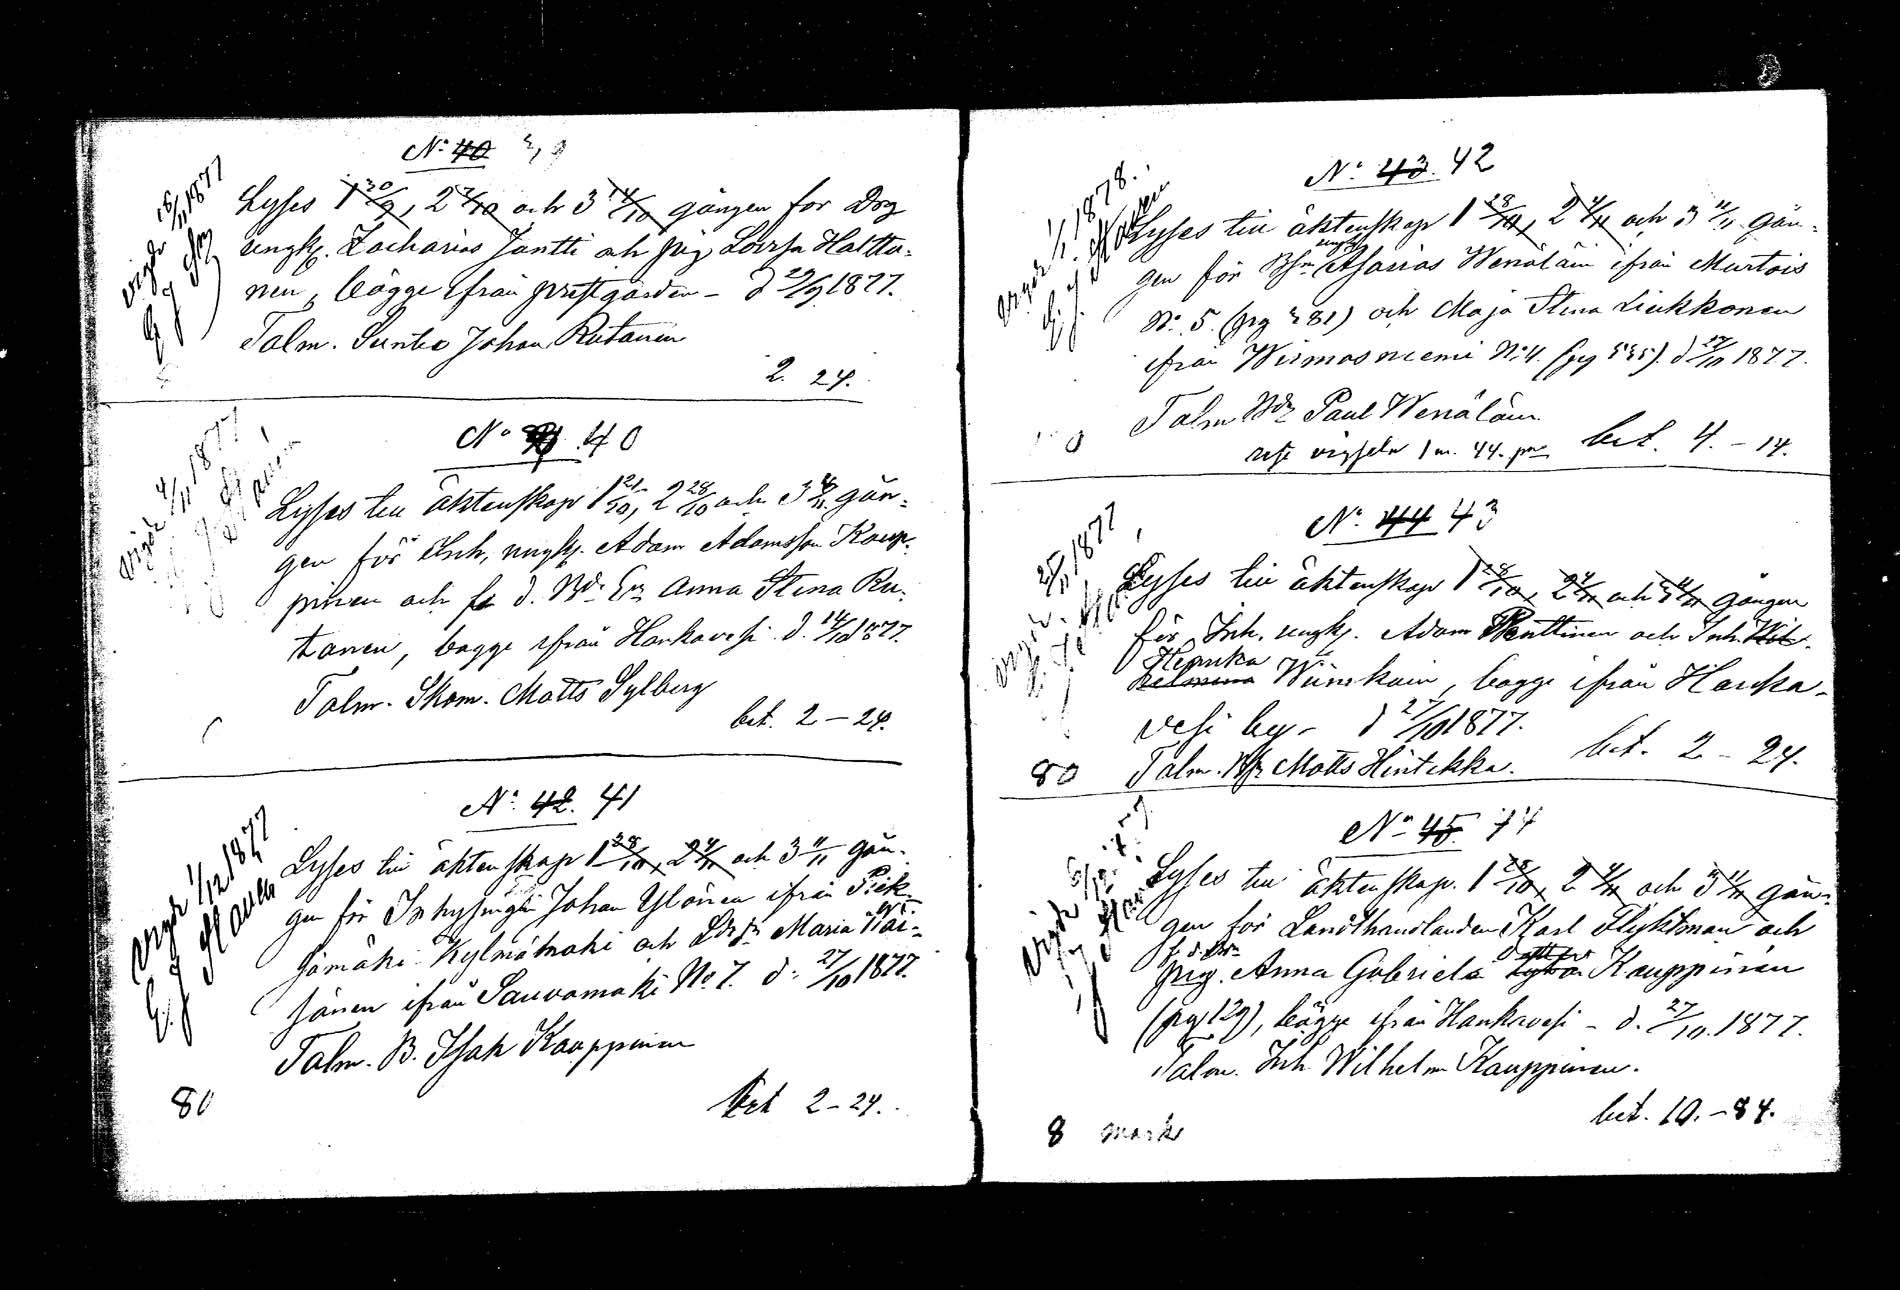 N:o 40 39
Vigde 18/11 1877
Lyses 1 30/9, 2 7/10 och 3 14/10 gången for Drg
ungk. Zacharias Jantti och pig Lovisa Hattu-
nen, bägge ifrån prestgården – d 29/9 1877.
Talm. Johan Rutanen
2. 24.
N:o 41 40
Vigde 4/11 1877
Lyses till äktenskap 1 21/10, 2 28/10 och 3 4/11 gån-
gen för Inh. ungk. Adam Adamsson Kaup-
pinen och d. Anna Stina Ru-
tanen, bägge ifrån Hankavesi d. 14/10 1877.
Talm. Skom. Matts Sylberg
bet. 2 – 24.
N:o 42. 41
Vigde 1/12 1877
Lyses till äktenskap 1 28/10, 2 4/11 och 3 11/11 gån-
gen för Inhysing Johan Ylönen ifrån Piek-
sämäki Kylmämäki och Maria Wäi-
sänen ifrån Sauvamäki No 7. d: 27/10 1877.
Talm. B. Isak Kauppinen
80
bet 2 – 24.
N:o 43. 42
Vigde 1/1 1878.
Lyses till äktenskap 1 28/10, 2 4/11 och 3 11/11 gån-
gen för Bsn ungk Asarias Wenäläin ifrån Murtois
N:o 5. (pag 281) och Maja Stina Liukkonen
ifrån Wiimasniemi N:o 4. (pag 535). d 27/10 1877.
Talm Paul Wenäläin
rest vigseln 1 m. 44. pi
bet. 4. – 14.
N:o 44 43
Vigde 25/11 1877
Lyses till äktenskap 1 28/10, 2 4/11 och 3 11/11 gången
för Inh. ungk. Adam Penttinen och Inh. Wil-
Henrika
helmina Wiinikain, bägge ifrån Hanka-
vesi by – d 27/10 1877.
80 Talm. Matts Hintikka.
bet. 2 – 24.
N:o 45. 44
Lyses till äktenskap. 1 28/10, 2 4/11 och 3 11/11 gån-
gen för Landthandlanden Karl Flyktman och
pig. Anna Gabriels dotter Kauppinen
(pag 129), bägge ifrån Hankavesi – d. 27/10. 1877.
Talm. Inh Wilhelm Kauppinen.
bet. 10. – 84.
8 mark